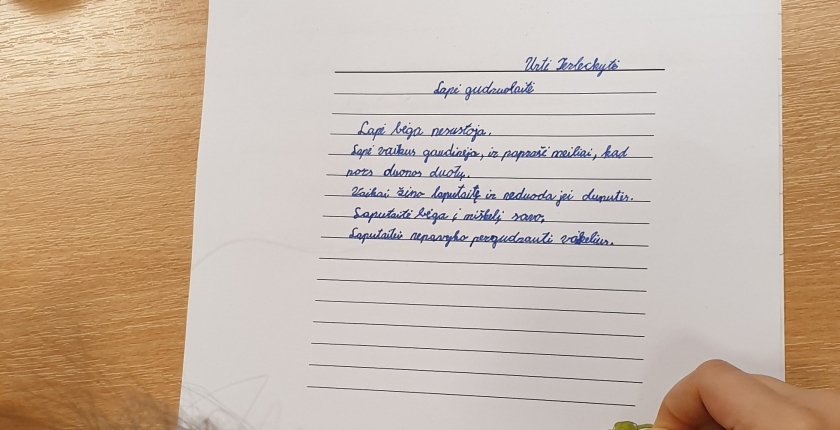 Urtė Terleckytė
Lapė gudruolaitė
Lapė bėga nesustoja.
Lapė vaikus gaudinėja, ir paprašė meiliai, kad
nors duonos duotų.
Vaikai žino laputaitę ir neduoda jei dunutės.
Laputaitė bėga į miškelį savo,
Laputaitei nepavyko pergudrauti vaikelius.